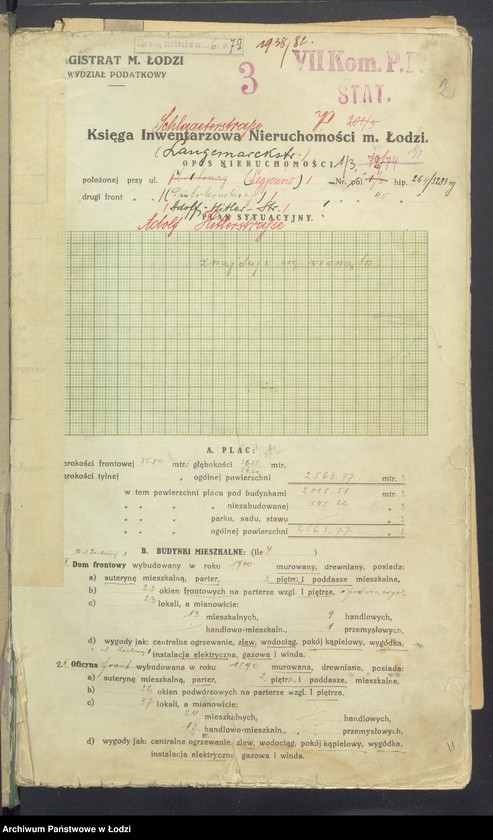 79 1938/82.
MAGISTRAT M. ŁODZI
WYDZIAŁ PODATKOWY
3
VII Kom. P.P.
STAT.
2
Schlageterstraße
Księga Inwentarzowa Nieruchomości m. Łodzi.
(Langemarckstr.)
OPIS NIERUCHOMOŚCI
położonej przy ul. (Legjonów) Nr. pol. hip.
drugi front „ „
Adolf-Hitler-Str.
PLAN SYTUACYJNY.
Adolf Hitlerstraße
znajduje się
A. PLAC:
erokości frontowej mtr. głębokości mtr.
erokości tylnej „ ogólnej powierzchni 2563.77 mtr.
w tem powierzchni placu pod budynkami 2018.51 mtr.
„ „ „ niezabudowanej 545.26 „
„ „ „ parku, sadu, stawu „
„ „ „ ogólnej powierzchni 2563.77 „
B. BUDYNKI MIESZKALNE: (ile 4 )
1. Dom frontowy wybudowany w roku 1900 murowany, drewniany, posiada:
a) suterynę mieszkalną, parter, 3 piętr. i poddasze mieszkalne,
b) 23 okien frontowych na parterze wzgl. I piętrze,
c) 23 lokali, a mianowicie:
13 mieszkalnych, 9 handlowych,
handlowo-mieszkaln., 1 przemysłowych,
d) wygody jak: centralne ogrzewanie, zlew, wodociąg, pokój kąpielowy, wygódka,
instalacja elektryczna, gazowa i winda.
2. Oficyna front wybudowana w roku 1890 murowana, drewniana, posiada:
a) suterynę mieszkalną, parter, 2 piętr. i poddasze, mieszkalne,
b) 26 okien podwórzowych na parterze wzgl. I piętrze.
c) 37 lokali, a mianowicie:
24 mieszkalnych, handlowych,
13 handlowo-mieszkaln., przemysłowych,
d) wygody jak: centralne ogrzewanie, zlew, wodociąg, pokój kąpielowy, wygódka,
instalacja elektryczna, gazowa i winda.
Archiwum Państwowe w Łodzi